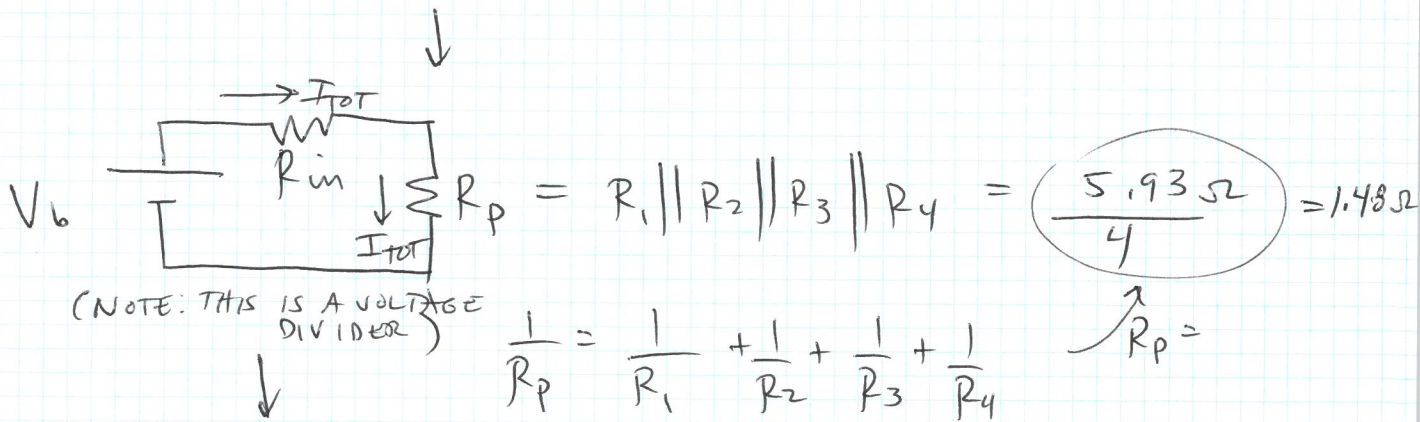 I_TOT
V_b R_in I_TOT R_p = R_1 || R_2 || R_3 || R_4 = 5.93 Ω / 4 = 1.48 Ω
(NOTE: THIS IS A VOLTAGE
DIVIDER)
1/R_p = 1/R_1 + 1/R_2 + 1/R_3 + 1/R_4
R_p =